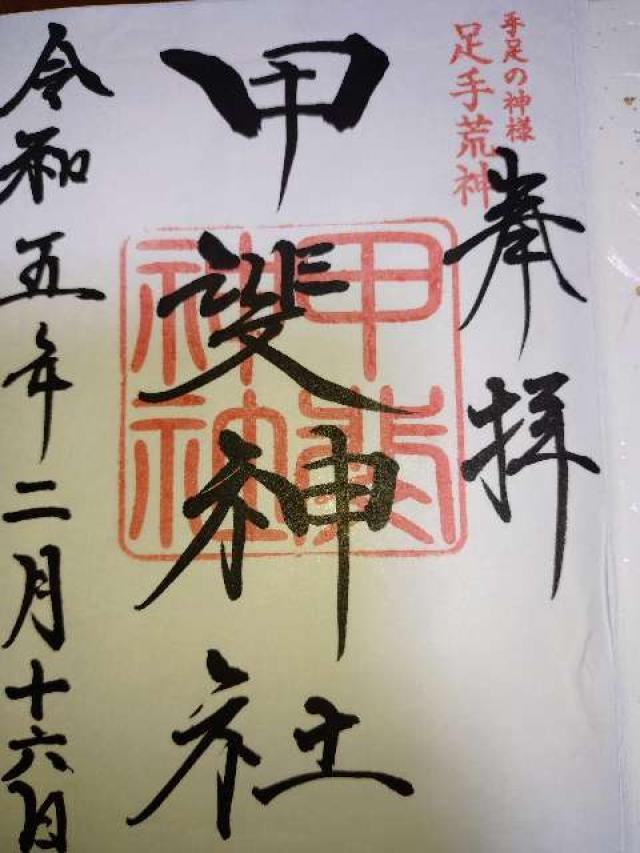 手足の神様
足手荒神
奉拝
甲斐神社
甲斐
神社
令和五年二月十六日